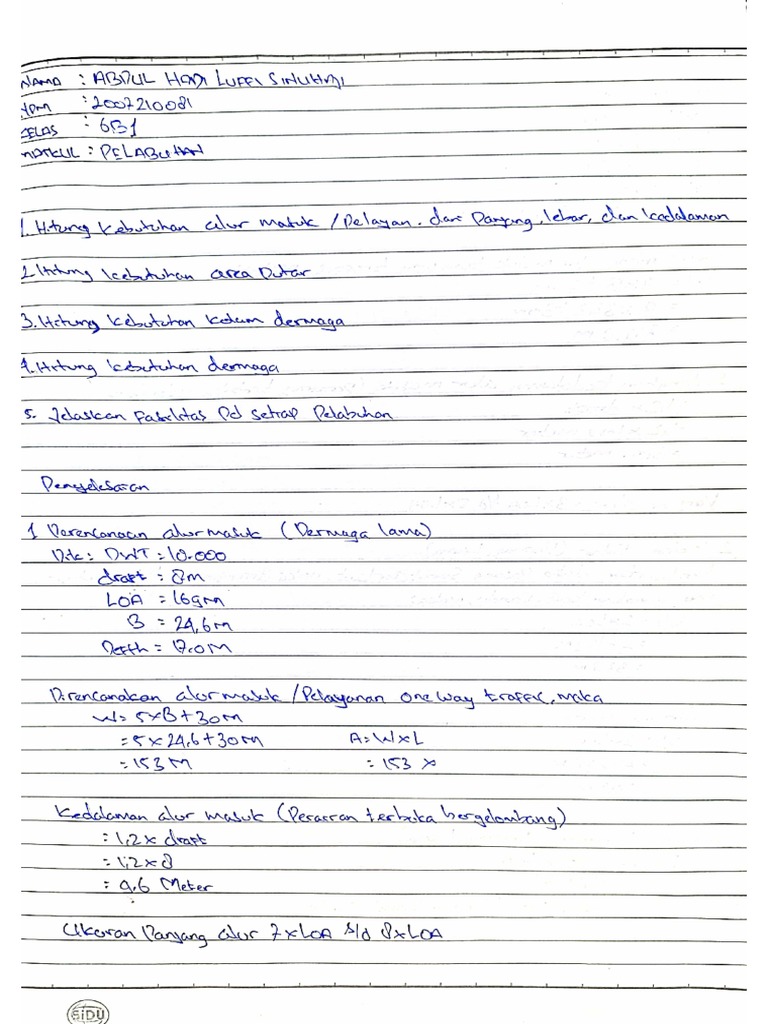 NAMA : ABDUL HADI LUFFI SINUHAJI
NPM : 2007210081
KELAS : 6B1
MATKUL : PELABUHAN
1. Hitung Kebutuhan alur masuk / Pelayan. dari Panjang, lebar, dan kedalaman
2. Hitung kebutuhan area Putar
3. Hitung kebutuhan kolam dermaga
4. Hitung kebutuhan dermaga
5. Jelaskan Fasilitas Pd setiap Pelabuhan
Penyelesaian
1 Perencanaan alur masuk (Dermaga lama)
Dik : DWT = 10.000
draft : 8m
LOA = 169m
B = 24,6m
Depth = 12.0M
Direncanakan alur masuk / Pelayanan one way traffic, maka
W = 5xB + 30m
= 5 x 24,6 + 30m A = W x L
= 153 M = 153 x
Kedalaman alur masuk (Perairan terbuka bergelombang)
= 1,2 x draft
= 1,2 x 8
= 9,6 Meter
Ukuran Panjang alur 7xLOA s/d 8xLOA
SiDU